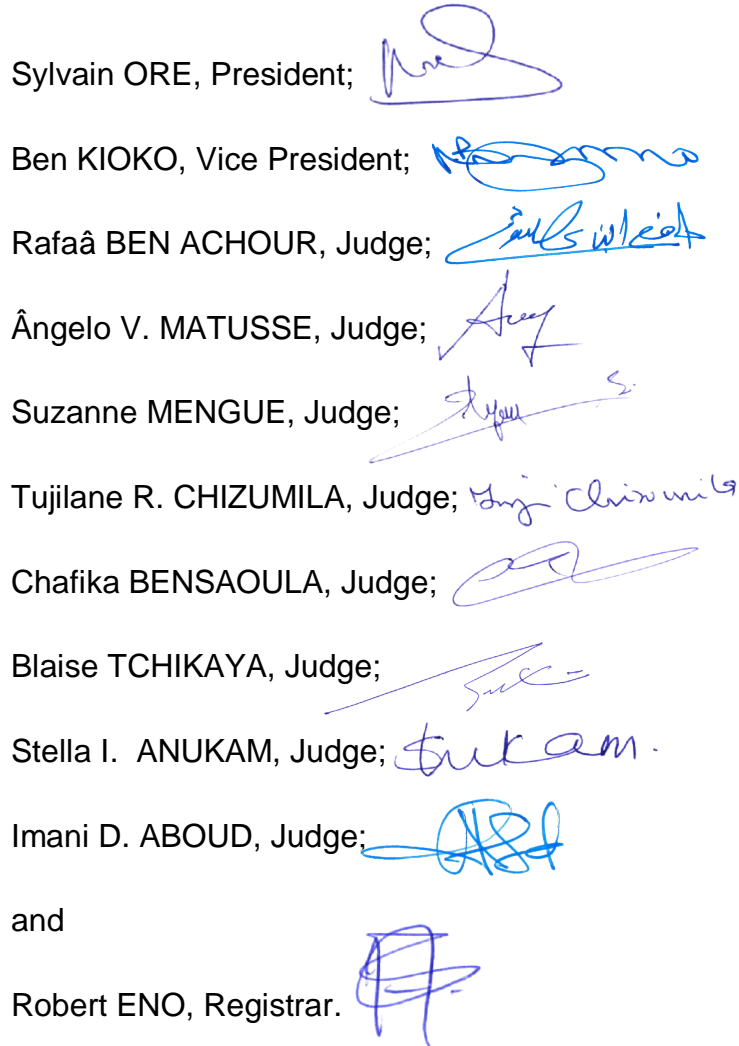 Sylvain ORE, President;
Ben KIOKO, Vice President;
Rafaâ BEN ACHOUR, Judge;
Ângelo V. MATUSSE, Judge;
Suzanne MENGUE, Judge;
Tujilane R. CHIZUMILA, Judge;
Chafika BENSAOULA, Judge;
Blaise TCHIKAYA, Judge;
Stella I. ANUKAM, Judge;
Imani D. ABOUD, Judge;
and
Robert ENO, Registrar.